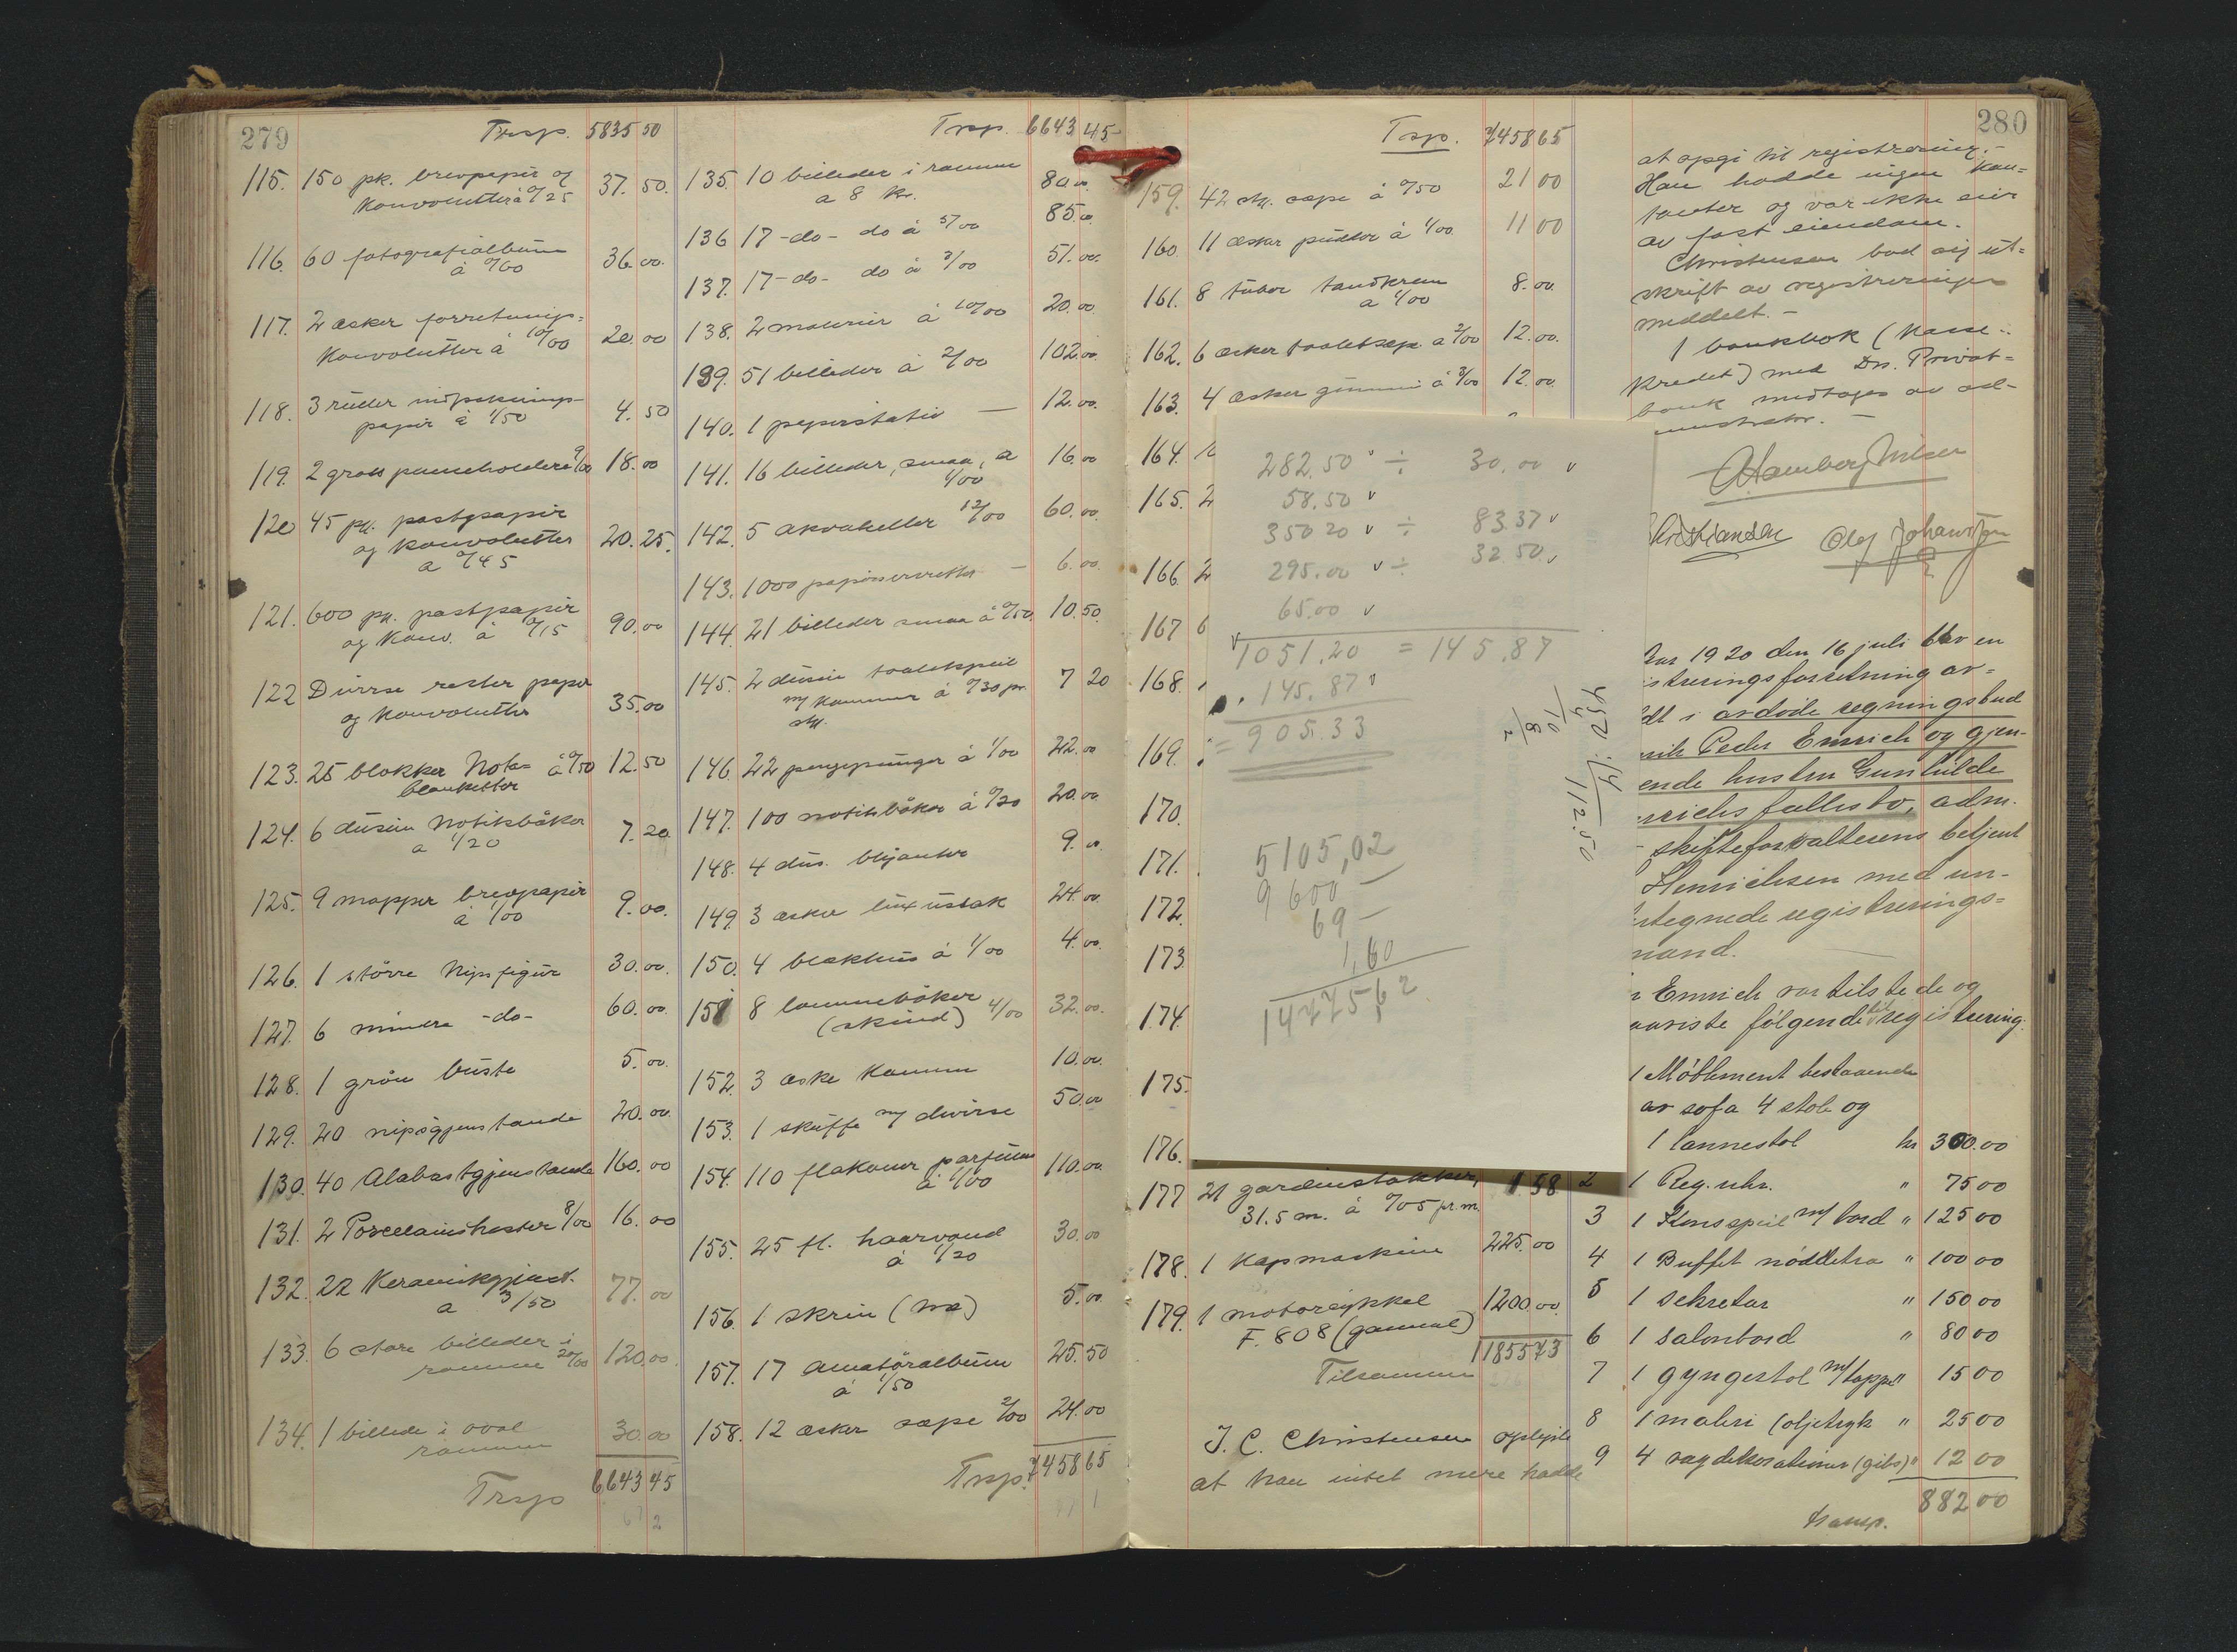 279
Trsp. 5835 50
115. 150 pk. brevpapir og
Konvolutter à 0/25 37.50.
116. 60 fotografialbum
à 0/60 36.00.
117. 2 æsker forretnings-
Konvolutter à 10/00 20.00
118. 3 ruller indpaknings-
papir à 1/50 4.50
119. 2 gross penneholdere 9/00 18.00
120 45 pk. postpapir
og Konvolutter
a 0/45 20.25.
121. 600 pk. postpapir
og Konv. à 0/15 90.00
122 Diverse rester papir
og Konvolutter 35.00
123. 25 blokker Nota- à 0/50 12.50
blanketter
124. 6 dusin Notisbøker
a 1/20 7.20
125. 9 mapper brevpapir
à 1/00 9.00.
126. 1 større Nipsfigur 30.00.
127. 6 mindre -do- 60.00.
128. 1 grön büste 5.00.
129. 20 nipsgjenstande 20.00.
130. 40 Alabastgjenstande 160.00
131. 2 Porcellainshester 8/00 16.00
132. 22 Keramikgjenst.
a 3/50 77.00
133. 6 store billeder i
ramme 20/00 120.00.
134. 1 billede i oval
ramme 30.00
Trsp 6643 45
Trsp. 6643 45
135. 10 billeder i ramme
a 8 kr. 80.00
136 17 -do- do à 5/00 85.00
137. 17 -do- do à 3/00 51.00.
138. 2 malerier à 10/00 20.00
139. 51 billeder à 2/00 102.00.
140. 1 papirstativ — 12.00.
141. 16 billeder, smaa, a
1/00 16.00
142. 5 akvareller 12/00 60.00.
143. 1000 papirservietter — 6.00.
144. 21 billeder smaa à 0/50 10.50.
145. 2 dusin toaletspeil
m/ kammer à 0/30 pr.
stk. 7 20
146. 22 pengepunger à 1/00 22.00
147. 100 notisbøker à 0/20 20.00
148. 4 dus. blyanter 9.00
149. 3 æsker luxuslak 24.00
150. 4 blækhus à 1/00 4.00.
151 8 lommebøker
(skind) 4/00 32.00.
152. 3 æske Kamme 10.00.
153. 1 skuffe m/ diverse 50.00
154. 110 flakoner parfume
à 1/00 110.00
155. 25 fl. haarvand
à 1/20 30.00
156. 1 skrin 5.00
157. 17 Amatøralbum
à 1/50 25.50
158. 12 æsker sæpe 2/00 24.00
Trsp. 7458 65
280
Trsp. 7458 65
159. 42 stk. sæpe à 0/50 21 00
160. 11 æsker pudder à 1/00. 11 00
161. 8 tuber tandkrem
a 1/00 8.00.
162. 6 æsker toaletsæpe a 2/00 12.00.
163. 4 æsker gummi à 3/00 12.00
164.
165. 2
166. 2
167 6
168.
169.
170.
171.
172.
173
174.
175.
176.
282.50 ÷ 30.00 v
58.50 v
350 20 v ÷ 83.37 v
295.00 v ÷ 32.50 v
65.00 v
1051.20 = 145.87
145.87 v
= 905.33
450 : 4 / 112.50
4
10
8
2
5105,02
9600 —
69 —
1,60
14775,62
177 21 gardinstokker, 1.58
31.5 m. à 0/05 pr. m.
178. 1 Kapmaskine 225.00
179. 1 motorcykkel 1200.00.
F. 808 (gammel)
Tilsammen 11855 73
J. C. Christensen oplyste
at han intet mere hadde
at opgi til registrering.-
Han hadde ingen kon-
tanter og var ikke eier
av fast eiendom.
Christensen bad sig ut-
skrift av registreringen
meddelt. -
1 bankbok (Kasse-
Kredit) med Dn. Privat-
bank medtages av ad-
ministrator. —
Olaf Johansen
Aar 1920 den 16 juli blev en
istreringsforretning av-
ldt i avdøde regningsbud
rik Peder Emrich og gjen-
ende hustru Gunhilde
mrichs fællesbo, adm.
skifteforvalterens betjent
Henrichsen med un-
rtegnede registrerings-
mand. —
Emrich var tilstede og
paaviste følgende til registrering:
1 Møblement bestaaende
av sofa 4 stole og
1 lænestol kr 300.00
2 1 Reg. uhr. " 75 00
3 1 Konsspeil m/ bord " 125 00
4 1 Buffet nøddetræ " 100 00
5 1 sekretær " 150 00
6 1 salonbord " 80 00
7 1 gyngestol m/ teppe " 15 00
8 1 maleri (oljetryk " 25 00
9 4 vægdekorationer (gibs) " 12 00
transp. 882 00